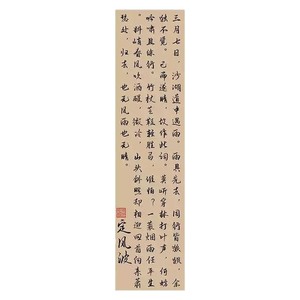 三月七日，沙湖道中遇雨。雨具先去，同行皆狼狈，余
独不觉。已而遂晴，故作此词。莫听穿林打叶声，何妨
吟啸且徐行。竹杖芒鞋轻胜马，谁怕？一蓑烟雨任平生
。料峭春风吹酒醒，微冷，山头斜照却相迎。回首向来萧
瑟处，归去，也无风雨也无晴。
定风波